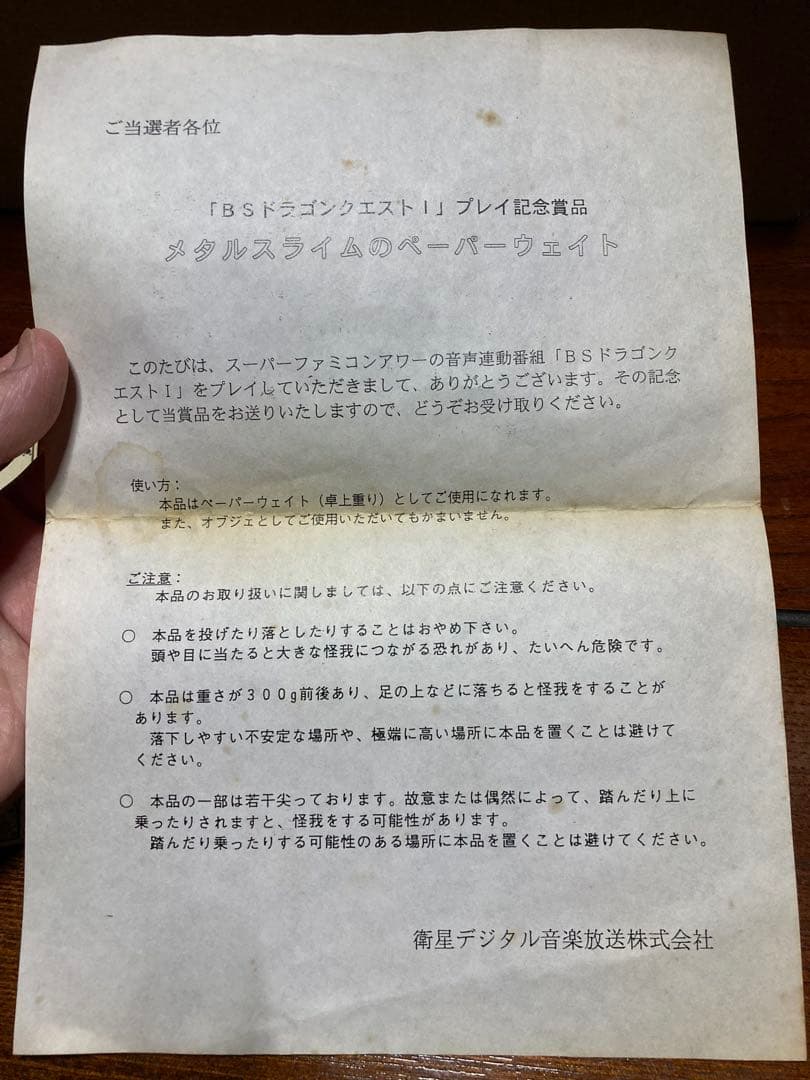 ご当選者各位
「ＢＳドラゴンクエストⅠ」プレイ記念賞品
メタルスライムのペーパーウェイト
このたびは、スーパーファミコンアワーの音声連動番組「ＢＳドラゴンク
エストⅠ」をプレイしていただきまして、ありがとうございます。その記念
として当賞品をお送りいたしますので、どうぞお受け取りください。
使い方：
本品はペーパーウェイト（卓上重り）としてご使用になれます。
また、オブジェとしてご使用いただいてもかまいません。
ご注意：
本品のお取り扱いに関しましては、以下の点にご注意ください。
○　本品を投げたり落としたりすることはおやめ下さい。
頭や目に当たると大きな怪我につながる恐れがあり、たいへん危険です。
○　本品は重さが３００g前後あり、足の上などに落ちると怪我をすることが
あります。
落下しやすい不安定な場所や、極端に高い場所に本品を置くことは避けて
ください。
○　本品の一部は若干尖っております。故意または偶然によって、踏んだり上に
乗ったりされますと、怪我をする可能性があります。
踏んだり乗ったりする可能性のある場所に本品を置くことは避けてください。
衛星デジタル音楽放送株式会社